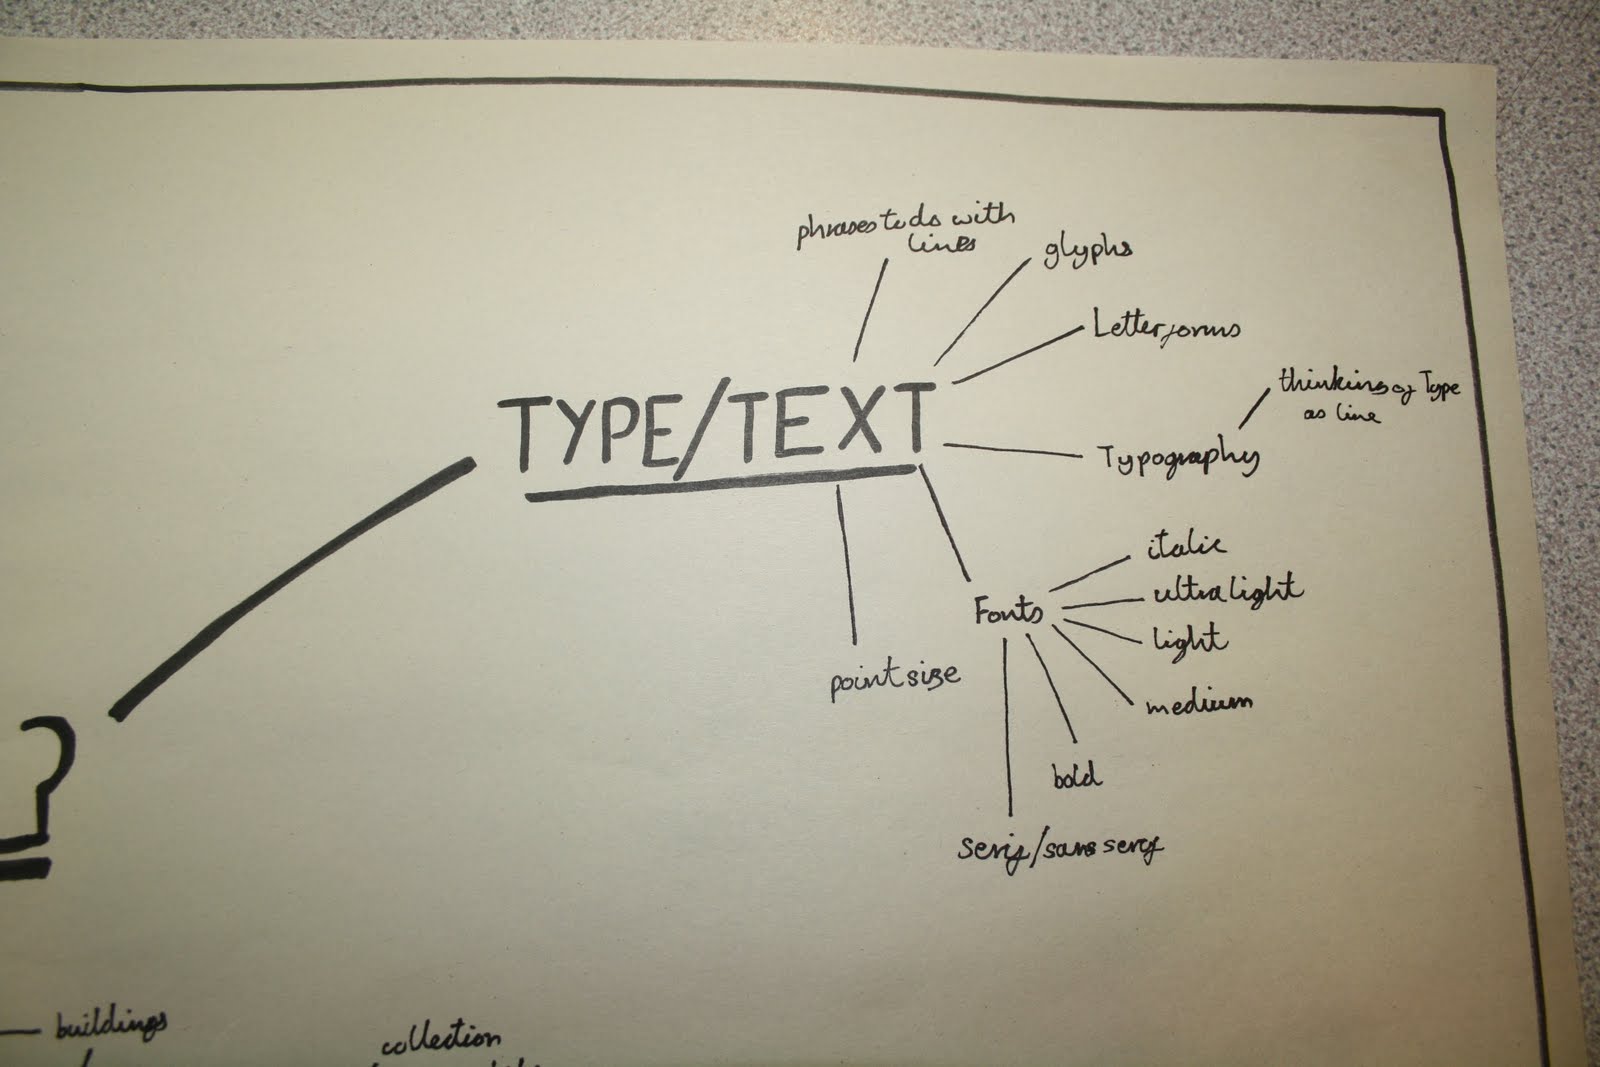 phrases to do with
lines
glyphs
Letterforms
TYPE/TEXT
thinking of Type
as line
Typography
italic
ultra light
Fonts
light
point size
medium
bold
serif/sans serif
?
buildings
collection